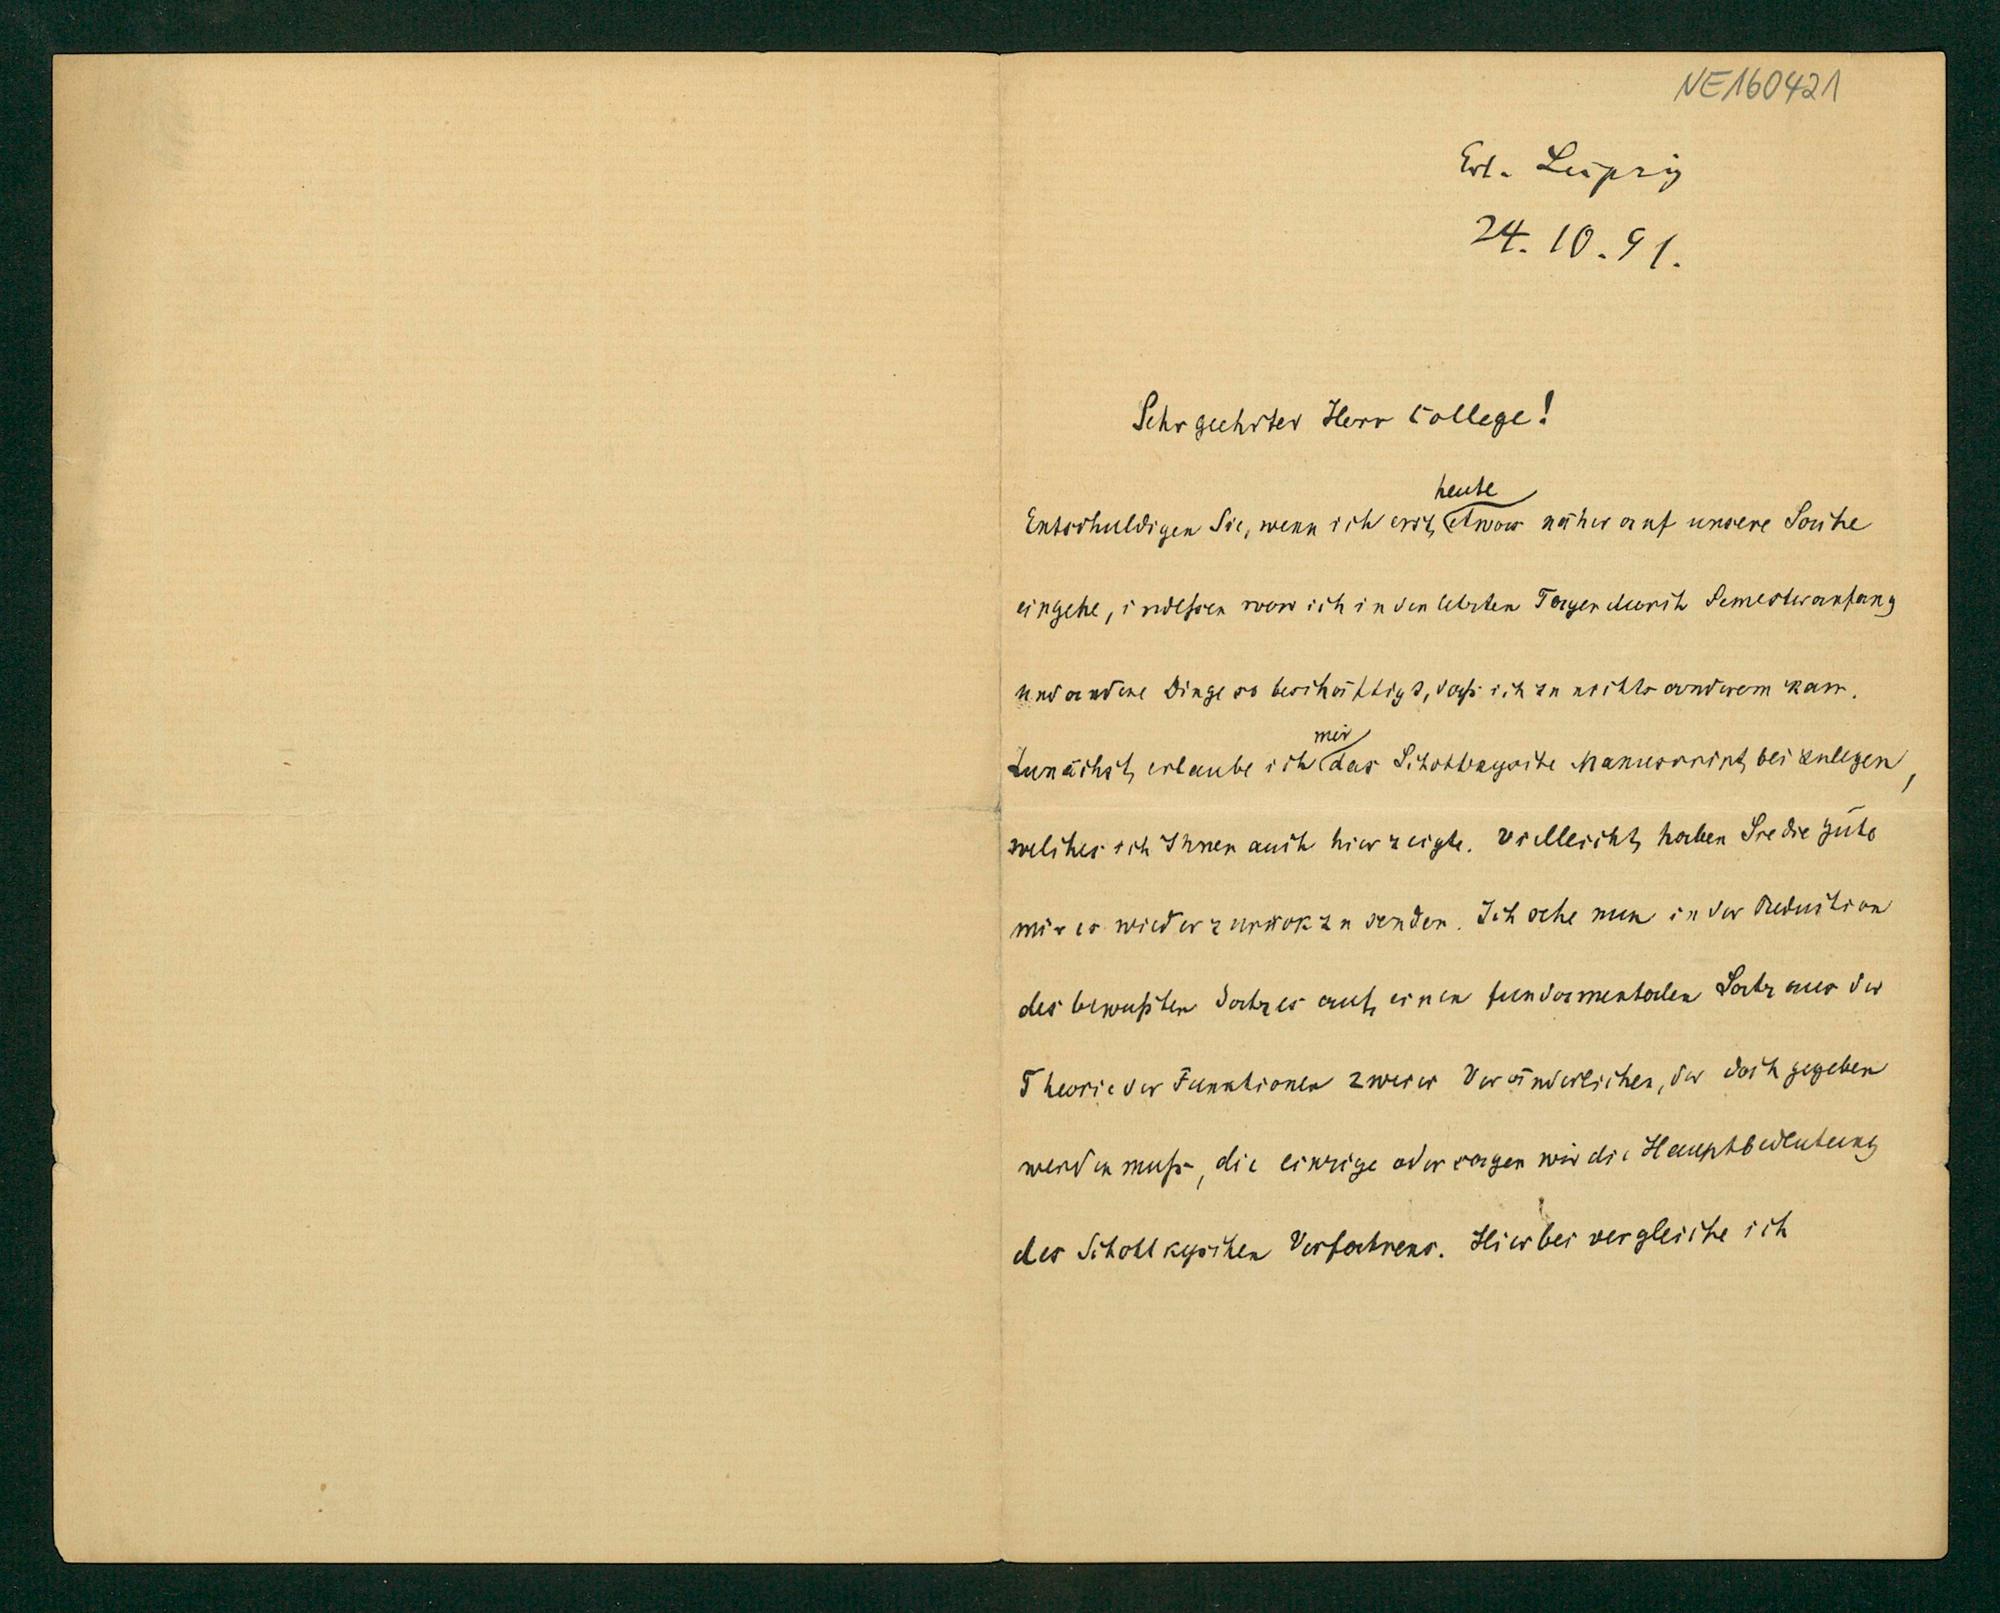 NE160421
Leipzig
24.10.91.
Sehr geehrter Herr College!
heute
Entschuldigen Sie, wenn ich erst etwas näher auf unsere Sache
eingehe, indessen war ich in den letzten Tagen durch Semesteranfang
und andere Dinge so beschäftigt, daß ich zu nichts anderem kam.
mir
Zunächst erlaube ich das Schottkysche Manuscript beizulegen,
welches ich Ihnen auch hier zeigte. Vielleicht haben Sie die Güte
mir es wieder zurückzusenden. Ich sehe nun in der Reduction
des bewußten Satzes auf einen fundamentalen Satz aus der
Theorie der Funktionen zweier Veränderlicher, der doch gegeben
werden muß, die einzige oder sagen wir die Hauptbedeutung
des Schottkyschen Verfahrens. Hierbei vergleiche ich